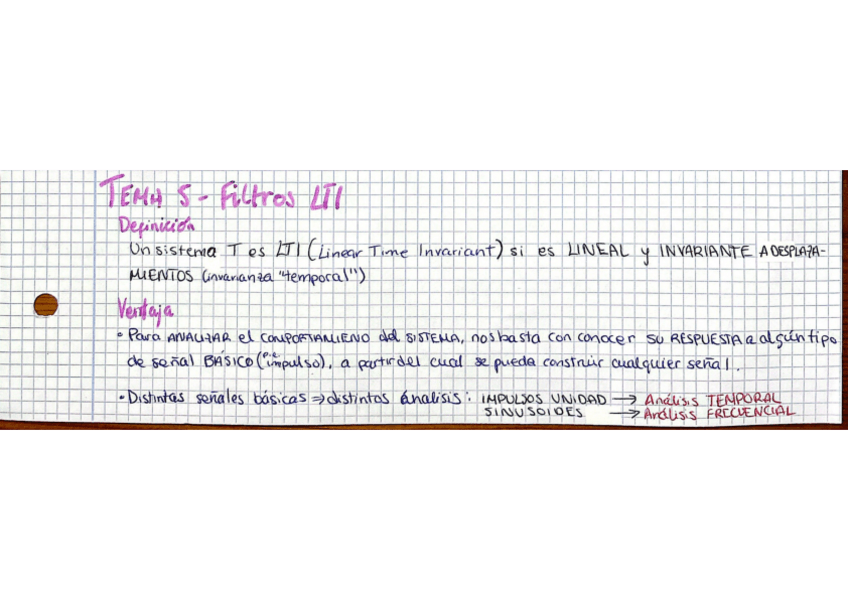 TEMA 5 - Filtros LTI
Definición
Un sistema T es LTI (Linear Time Invariant) si es LINEAL y INVARIANTE A DESPLAZA-
MIENTOS (invarianza "temporal")
Ventaja
• Para ANALIZAR el COMPORTAMIENO del SISTEMA, nos basta con conocer su RESPUESTA a algún tipo
de señal BÁSICO (p.e. impulso), a partir del cual se pueda construir cualquier señal.
• Distintas señales básicas ⇒ distintos ánalisis: IMPULSOS UNIDAD → Análisis TEMPORAL
SINUSOIDES → Análisis FRECUENCIAL